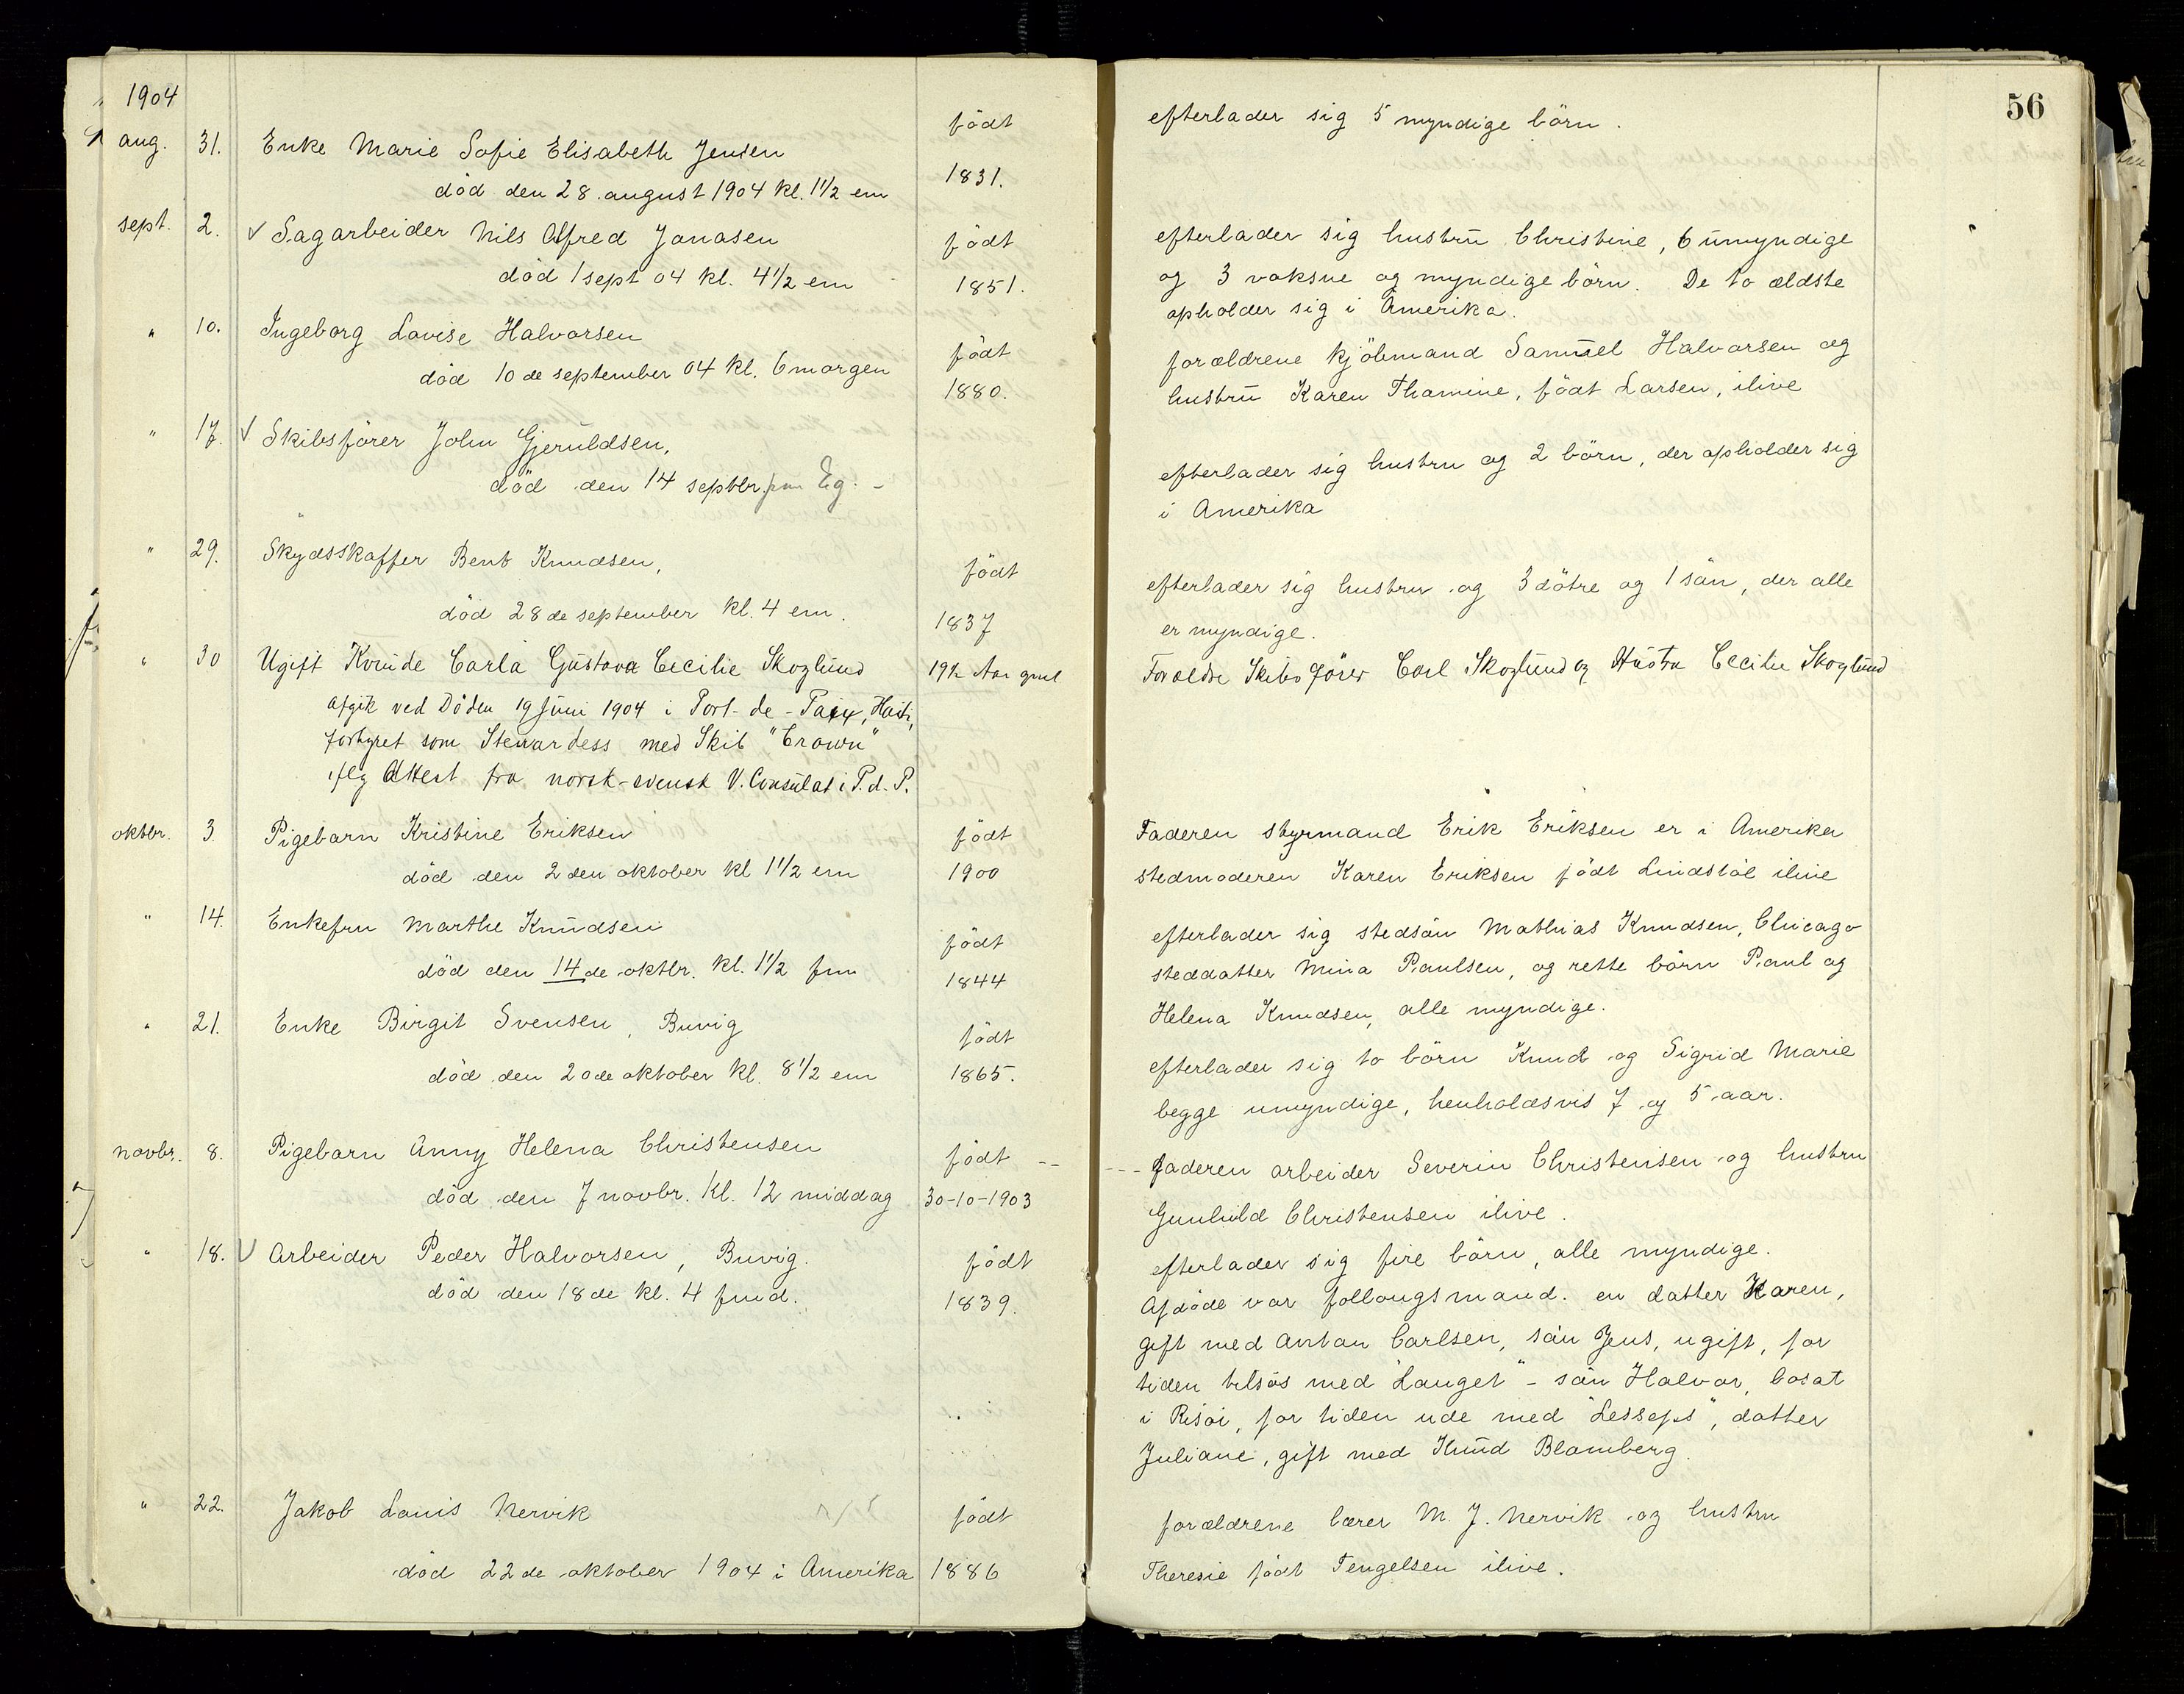 1904
56
aug. 31. Enke Marie Sofie Elisabeth Jensen født efterlader sig 5 myndige börn.
död den 28. august 1904 kl. 1 1/2 em 1831.
sept. 2. √ Sagarbeider Nils Alfred Jonasen födt efterlader sig hustru Christine, 6 umyndige
död 1 sept 04 kl. 4 1/2 em 1851. og 3 voksne og myndige börn. De to ældste
opholder sig i Amerika.
" 10. Ingeborg Lovise Halvorsen födt forældrene kjöbmand Samuel Halvorsen og
död 10de september 04 kl. 6 morgen 1880. hustru Karen Thomine, födt Larsen, ilive
" 17. √ Skibsförer John Gjeruldsen, efterlader sig hustru og 2 börn, der opholder sig
död den 14 septbr. i Amerika
" 29. Skydsskaffer Bent Knudsen, födt efterlader sig hustru og 3 dötre og 1 sön, der alle
död 28de september kl. 4 em. 1837 er myndige.
" 30 Ugift Kvinde Carla Gustava Cecilie Skoglund 19 1/2 Aar gml Forældre Skibsförer Carl Skoglund og Hustru Cecilie Skoglund
afgik ved Döden 19 Juni 1904 i Port-de-Paix, Haiti,
forhyret som Stewardess med Skib "Crown"
iflg Attest fra norsk-svensk V. Consulat i P.d.P.
oktbr. 3. Pigebarn Kristine Eriksen födt Faderen styrmand Erik Eriksen er i Amerika
död den 2den oktober kl 1 1/2 em 1900 stedmoderen Karen Eriksen födt Lindstöl ilive
" 14. Enkefru Marthe Knudsen födt efterlader sig stedsön Mathias Knudsen, Chicago
död den 14de oktbr. kl. 1 1/2 fm 1844 steddatter Mina Paulsen, og rette börn Paul og
Helena Knudsen, alle myndige.
" 21. Enke Birgit Svensen, Buvig födt efterlader sig to börn Knud og Sigrid Marie
död den 20de oktober kl. 8 1/2 em 1865. begge umyndige, henholdsvis 7 og 5 aar.
novbr. 8. Pigebarn Anny Helena Christensen födt faderen arbeider Severin Christensen og hustru
död den 7 novbr. kl. 12 middag 30-10-1903 Gunhild Christensen ilive.
" 18. √ Arbeider Peder Halvorsen, Buvig. födt efterlader sig fire börn, alle myndige.
död den 18de kl. 4 fmd. 1839. Afdöde var follougsmand. en datter Karen,
gift med Anton Carlsen, sön Jens, ugift, for
tiden tilsös med "Lauget" - sön Halvor, bosat
i Risör, for tiden ude med "Lesseps", datter
Juliane, gift med Knud Blomberg.
" 22. Jakob Louis Nervik födt forældrene lærer M. J. Nervik og hustru
död 22de oktober 1904 i Amerika 1886 Theresie födt Tengelsen ilive.